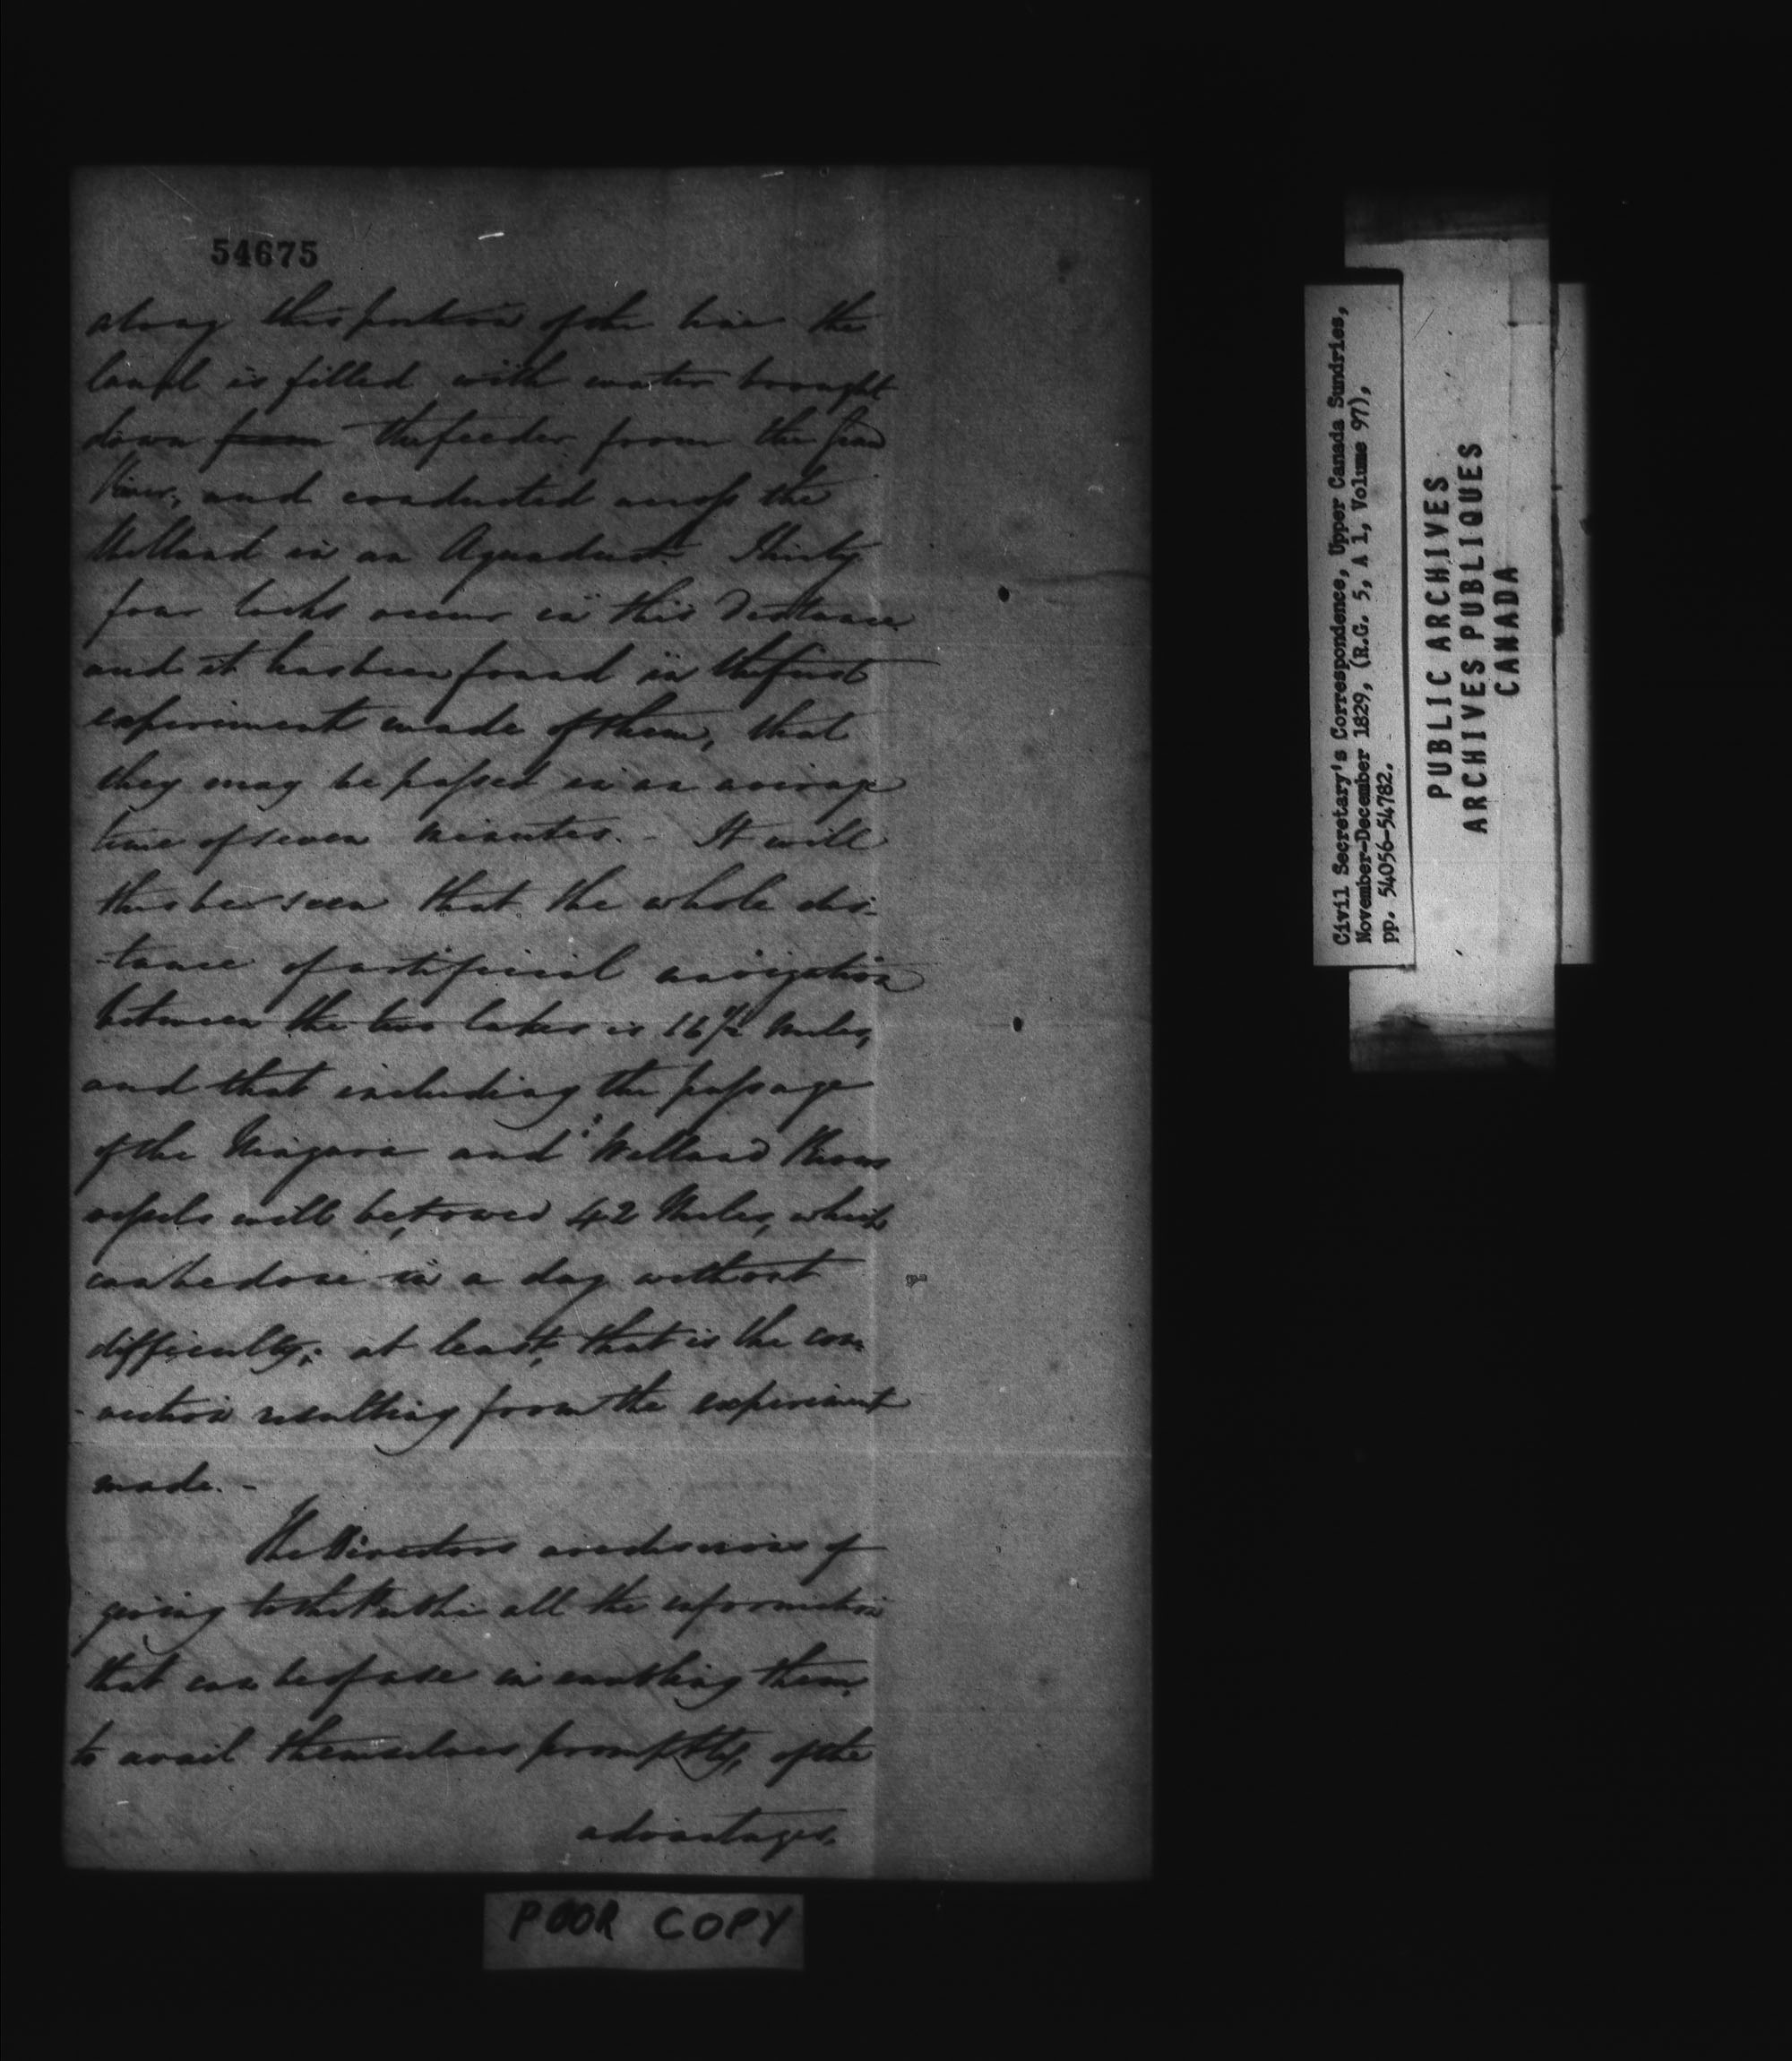 54675
along this portion of the line the
land is filled with water brought
down from the feeder from the Grand
River, and conducted across the
Welland in an Aqueduct. Thirty
four locks occur in this Distance
and it has been found in the first
experiments made of them, that
they may be passed in an average
time of seven minutes. - It will
thus be seen that the whole dis-
-tance of artificial navigation
between the two lakes is 16 1/2 Miles,
and that including the passage
of the Niagara and Welland Rivers
vessels will be towed 42 Miles, which
can be done in a day without
difficulty; at least, that is the con
-viction resulting from the experiment
made. -
The Directors are desirous of
giving to the Public all the information
that can be of use in enabling them
to avail themselves promptly, of the
advantages.
POOR COPY
Civil Secretary's Correspondence, Upper Canada Sundries,
November-December 1829, (R.G. 5, A 1, Volume 97),
pp. 54056-54782.
PUBLIC ARCHIVES
ARCHIVES PUBLIQUES
CANADA